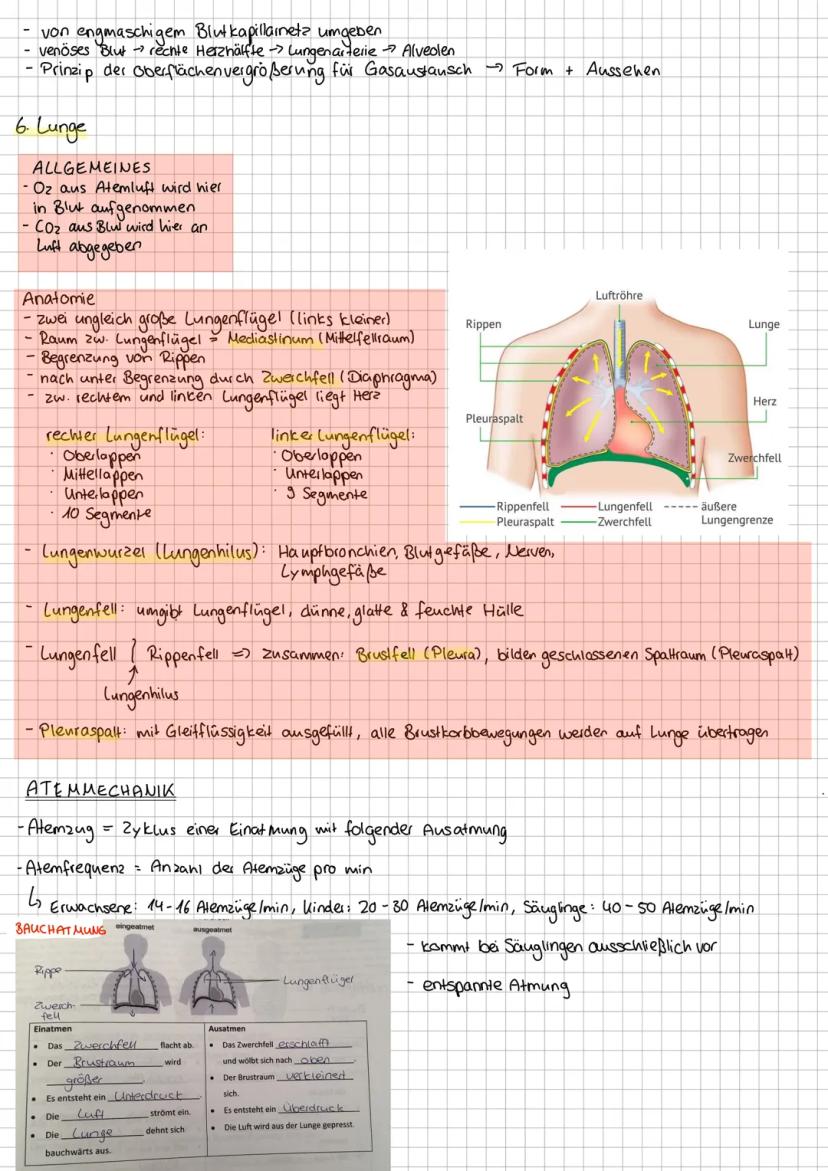 - von engmaschigem Blutkapillarnetz umgeben
- venöses Blut → rechte Herzhälfte → Lungenarterie → Alveolen
- Prinzip der Oberflächenvergrößerung für Gasaustausch → Form + Aussehen
6. Lunge
ALLGEMEINES
- O2 aus Atemluft wird hier
in Blut aufgenommen
- CO2 aus Blut wird hier an
Luft abgegeben
Anatomie
- zwei ungleich große Lungenflügel (links kleiner)
- Raum zw. Lungenflügel = Mediastinum (Mittelfellraum)
- Begrenzung von Rippen
- nach unter Begrenzung durch Zwerchfell (Diaphragma)
- zw. rechtem und linken Lungenflügel liegt Herz
rechter Lungenflügel:
· Oberlappen
· Mittellappen
· Unterlappen
· 10 Segmente
linker Lungenflügel:
· Oberlappen
· Unterlappen
· 9 Segmente
Luftröhre
Rippen
Lunge
Herz
Pleuraspalt
Zwerchfell
Rippenfell
Lungenfell
äußere
Lungengrenze
Pleuraspalt
Zwerchfell
- Lungenwurzel (Lungenhilus): Hauptbronchien, Blutgefäße, Nerven,
Lymphgefäße
- Lungenfell: umgibt Lungenflügel, dünne, glatte & feuchte Hülle
- Lungenfell } Rippenfell => zusammen: Brustfell (Pleura), bilden geschlossenen Spaltraum (Pleuraspalt)
↑
Lungenhilus
- Pleuraspalt: mit Gleitflüssigkeit ausgefüllt, alle Brustkorbbewegungen werden auf Lunge übertragen
ATEMMECHANIK
- Atemzug = Zyklus einer Einatmung mit folgender Ausatmung
- Atemfrequenz = Anzahl der Atemzüge pro min
↳ Erwachsene: 14-16 Atemzüge/min, Kinder: 20-30 Atemzüge/min, Säuglinge: 40-50 Atemzüge/min
BAUCHATMUNG
eingeatmet
ausgeatmet
Rippe
Lungenflügel
Zwerch-
fell
- kommt bei Säuglingen ausschließlich vor
- entspannte Atmung
Einatmen
• Das Zwerchfell flacht ab.
• Der Brustraum wird
größer.
• Es entsteht ein Unterdruck.
• Die Luft strömt ein.
• Die Lunge dehnt sich
bauchwärts aus.
Ausatmen
• Das Zwerchfell erschlafft
und wölbt sich nach oben.
• Der Brustraum verkleinert
sich.
• Es entsteht ein Überdruck.
• Die Luft wird aus der Lunge gepresst.